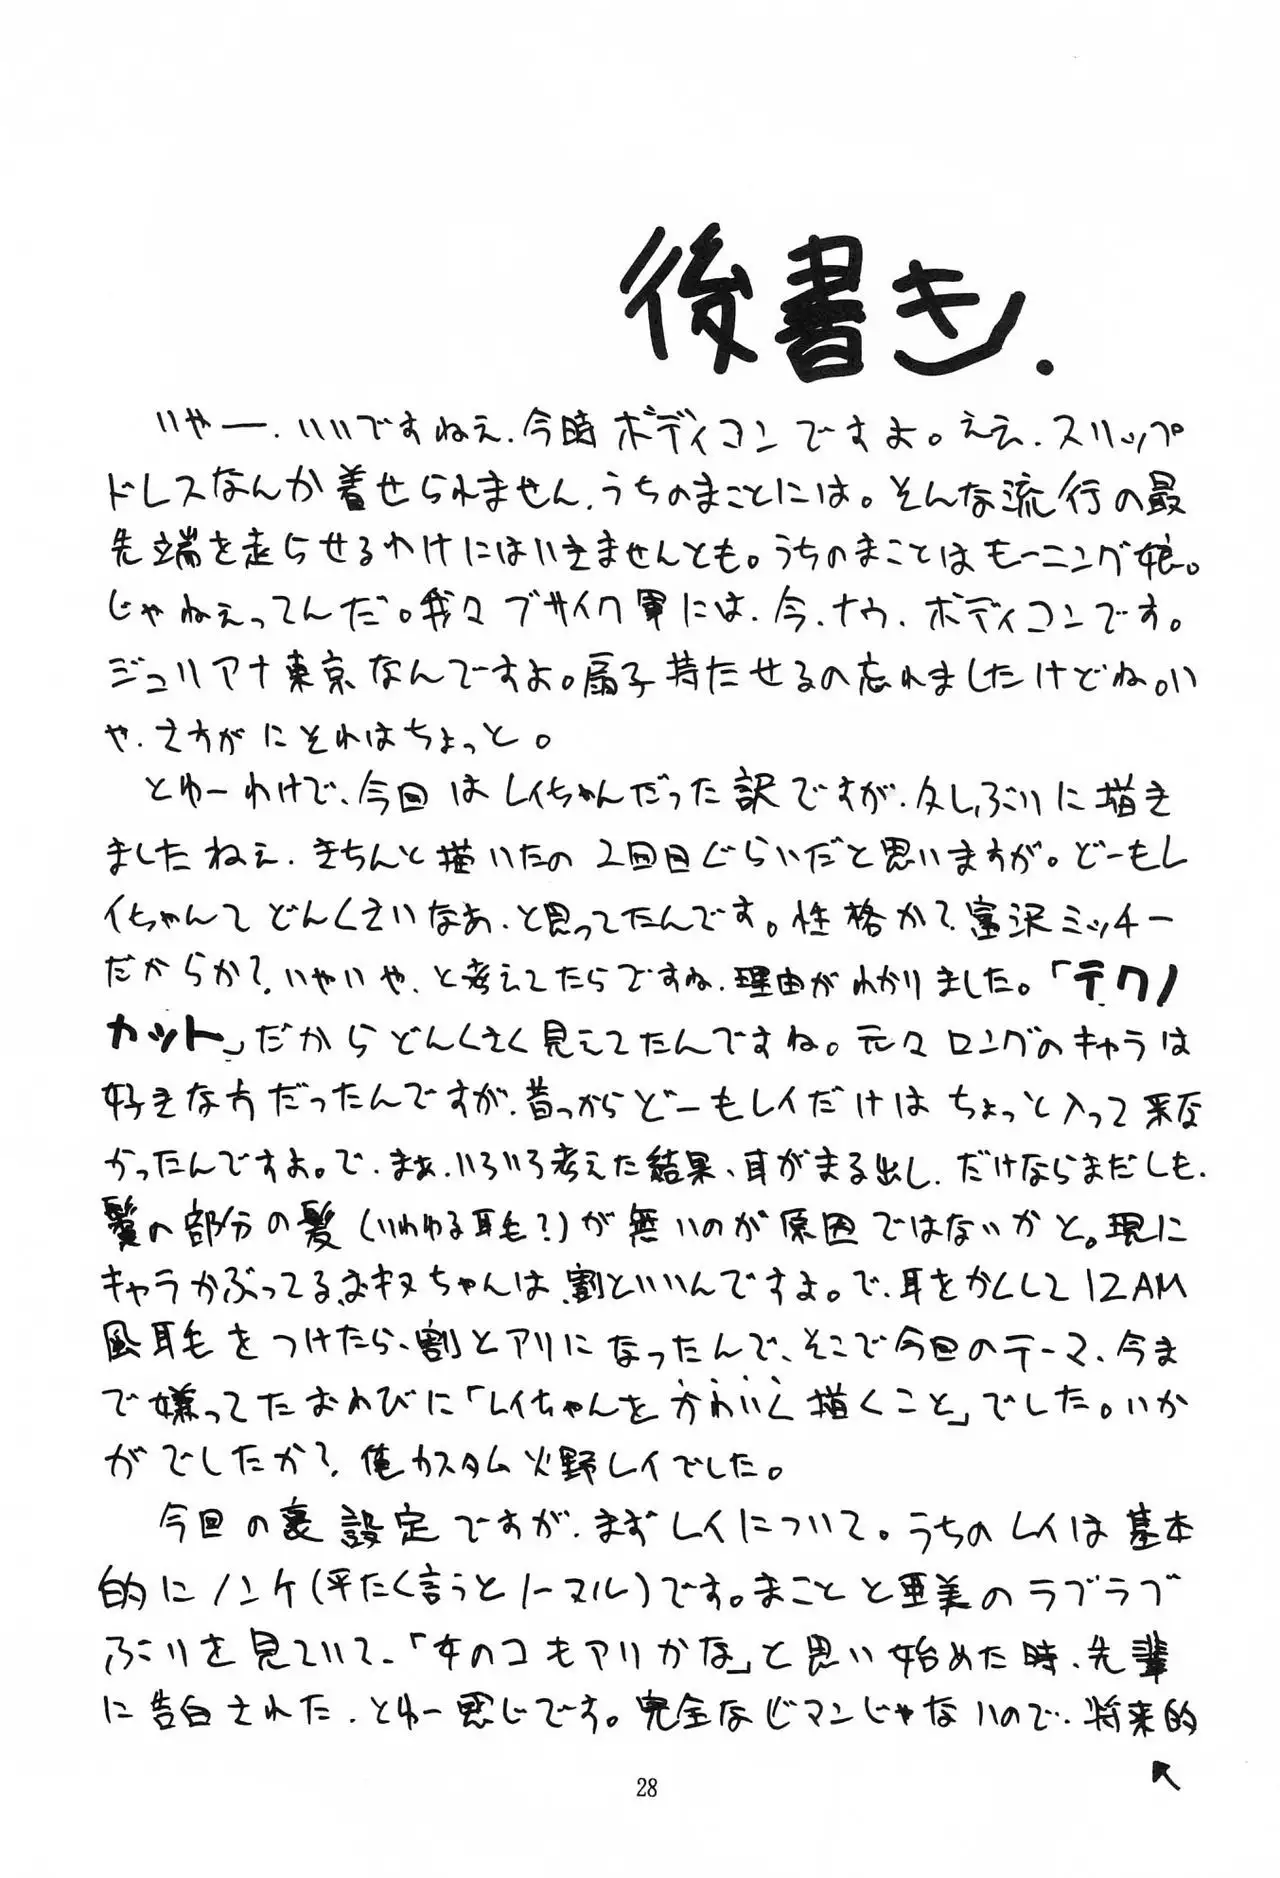 後書き.
いやー.いいですねぇ.今時ボディコンですよ。ええ.スリップ
ドレスなんか着せられません.うちのまことには。そんな流行の最
先端を走らせるわけにはいきませんとも。うちのまことはモーニング娘。
じゃねぇってんだ。我々ブサイク軍には.今.ナウ.ボディコンです。
ジュリアナ東京なんですよ。扇子持たせるの忘れましたけどね。い
や.さすがにそれはちょっと。
とゆーわけで、今回はレイちゃんだった訳ですが.久しぶりに描き
ましたねぇ.きちんと描いたの2回目ぐらいだと思いますが。どーもレ
イちゃんてどんくさいなぁ.と思ってたんです。性格か?富沢ミッチー
だからか?いやいや.と考えてたらですね.理由がわかりました。「テクノ
カット」だからどんくさく見えてたんですね。元々ロングのキャラは
好きな方だったんですが.昔っからどーもレイだけはちょっと入って来な
かったんですよ。で.まぁ.いろいろ考えた結果、耳がまる出し.だけならまだしも.
鬢の部分の髪(いわゆる耳毛?)が無いのが原因ではないかと。現に
キャラかぶってるおキヌちゃんは割といいんですよ。で、耳をかくして12AM
風耳毛をつけたら、割とアリになったんで、そこで今回のテーマ、今ま
で嫌ってたおわびに「レイちゃんをかわいく描くこと」でした。いか
がでしたか?俺カスタム火野レイでした。
今回の裏設定ですが.まずレイについて。うちのレイは基本
的にノンケ(平たく言うとノーマル)です。まことと亜美のラブラブ
ぶりを見ていて、「女のコもアリかな」と思い始めた時、先輩
に告白された.とゆー感じです。完全なビアンじゃないので、将来的
28